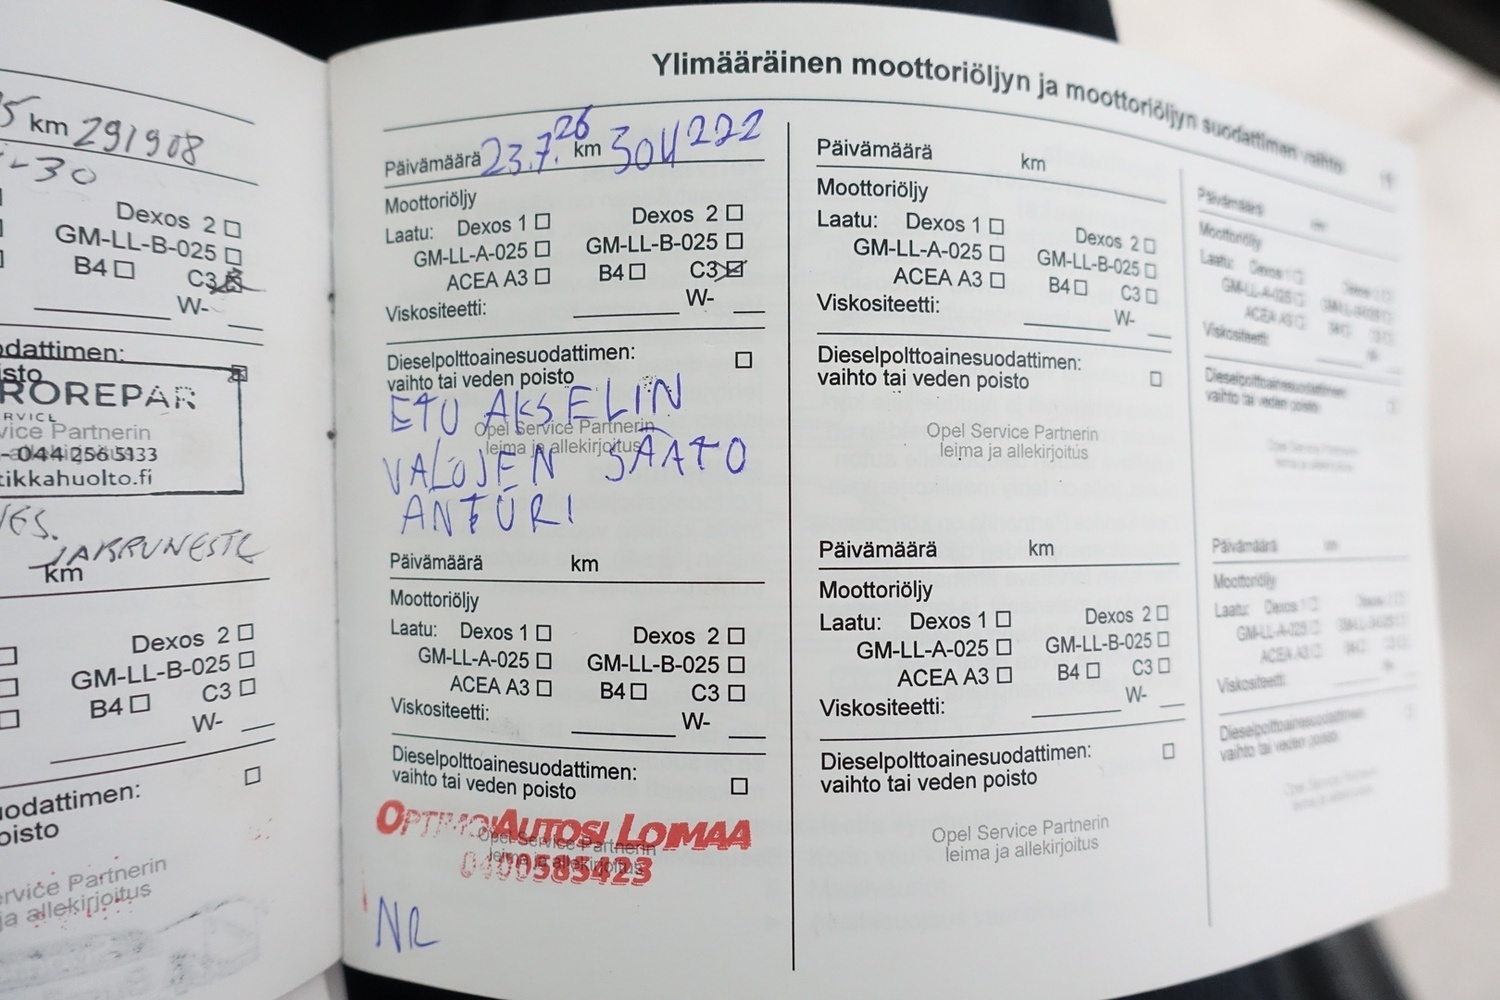 Ylimääräinen moottoriöljyn ja moottoriöljyn suodattimen vaihto
km 291908
-30
Dexos 2
GM-LL-B-025
B4 C3
W-
odattimen:
isto
ROREPAR
RVICE
vice Partnerin
ja allekirjoitus
-044 256 5133
tikkahuolto.fi
JARRUNESTE
km
Dexos 2
GM-LL-B-025
B4 C3
W-
uodattimen:
oisto
ervice Partnerin
ja allekirjoitus
Päivämäärä 23.7.26 km 304222
Moottoriöljy
Laatu: Dexos 1 Dexos 2
GM-LL-A-025 GM-LL-B-025
ACEA A3 B4 C3
Viskositeetti: W-
Dieselpolttoainesuodattimen:
vaihto tai veden poisto
ETU AKSELIN
Opel Service Partnerin
leima ja allekirjoitus
VALOJEN SÄÄTÖ
ANTURI
Päivämäärä km
Moottoriöljy
Laatu: Dexos 1 Dexos 2
GM-LL-A-025 GM-LL-B-025
ACEA A3 B4 C3
Viskositeetti: W-
Dieselpolttoainesuodattimen:
vaihto tai veden poisto
OPTIMOI AUTOSI LOIMAA
Opel Service Partnerin
leima ja allekirjoitus
0400585423
NR
Päivämäärä km
Moottoriöljy
Laatu: Dexos 1 Dexos 2
GM-LL-A-025 GM-LL-B-025
ACEA A3 B4 C3
Viskositeetti: W-
Dieselpolttoainesuodattimen:
vaihto tai veden poisto
Opel Service Partnerin
leima ja allekirjoitus
Päivämäärä km
Moottoriöljy
Laatu: Dexos 1 Dexos 2
GM-LL-A-025 GM-LL-B-025
ACEA A3 B4 C3
Viskositeetti: W-
Dieselpolttoainesuodattimen:
vaihto tai veden poisto
Opel Service Partnerin
leima ja allekirjoitus
Päivämäärä km
Moottoriöljy
Laatu: Dexos 1
GM-LL-A-025
ACEA A3
Viskositeetti:
Dieselpolttoainesuodattimen:
vaihto tai veden poisto
Päivämäärä km
Moottoriöljy
Laatu: Dexos 1
GM-LL-A-025
ACEA A3
Viskositeetti:
Dieselpolttoainesuodattimen:
vaihto tai veden poisto